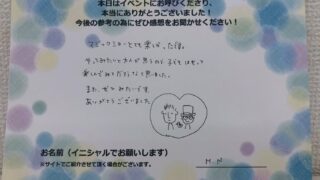 本日はイベントにお呼びくださり、
本当にありがとうございました！
今後の参考の為にぜひ感想をお聞かせください！
マジックショーとても楽しかったです。
また、ぜひ みたいです。
ありがとうございました
お名前（イニシャルでお願いします）
※サイトでご紹介させて頂く場合がございます。
M.N